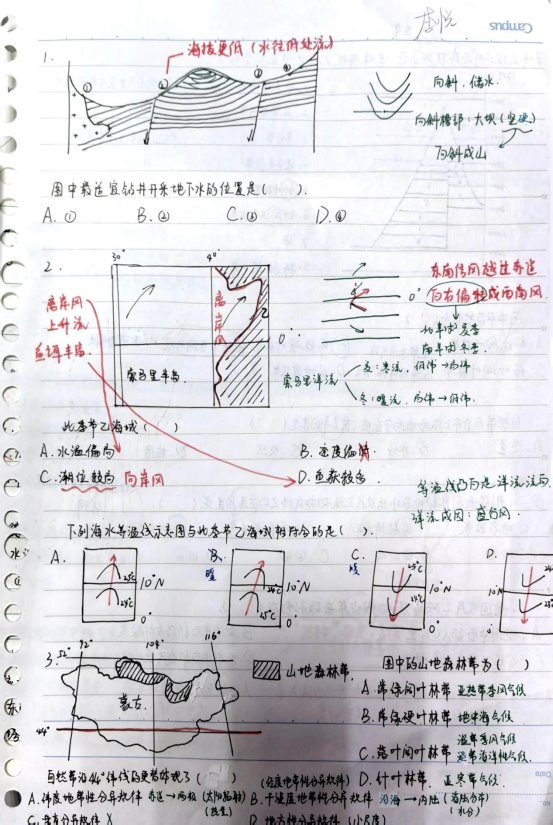 Campus
1.
海拔更低（水往低处流）
① ② ③ ④
向斜，储水
向斜槽部：大坝（坚硬）
向斜成山
图中最适宜钻井开采地下水的位置是（ ）.
A. ① B. ② C. ③ D. ④
2.
30° 40°
0°
离岸风
上升流
鱼群丰富.
离岸风
乙
索马里半岛
东南信风越过赤道
向右偏转成西南风
0°
北半球夏季
南半球冬季
索马里洋流
夏：寒流，低纬→高纬
冬：暖流，高纬→低纬
此季节乙海域（ ）
A. 水温偏高 B. 密度偏
C. 潮位较高 向岸风 D. 鱼获较多
等温线凸向是洋流流向
洋流成因：盛行风.
下列海水等温线示意图与此季节乙海域相符合的是（ ）.
A. B. C. D.
暖 暖
25℃ 24℃ 10°N 0°
24℃ 25℃ 10°N 0°
25℃ 24℃ 10°N 0°
10°N 0°
3.
52° 92° 104° 116°
44°
蒙古
山地森林带
图中的山地森林带为（ ）
A. 常绿阔叶林带 亚热带季风气候
B. 常绿硬叶林带 地中海气候
温带季风气候
C. 落叶阔叶林带 温带海洋性气候
D. 针叶林带 亚寒带气候
自然带沿44°纬线的更替体现了（ ）
（经度地带性分异规律）
A. 纬度地带性分异规律 赤道→两极（太阳辐射）（热量）
B. 干湿度地带性分异规律 沿海→内陆（海陆分布）（水分）
C. 垂直分异规律 X
D. 地方性分异规律（小尺度）
Date
No.